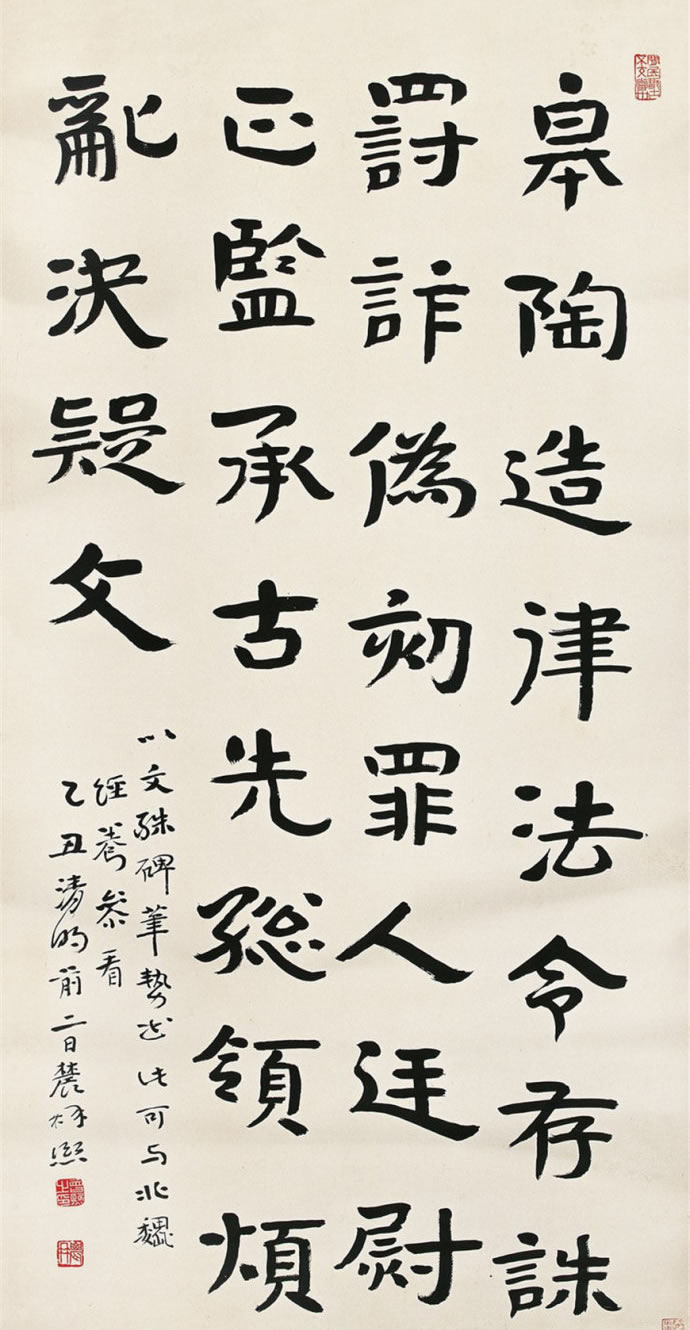 皋陶造律法令存誅
罰詐偽劾罪人廷尉
正監承古先總領煩
亂決疑文
以文殊碑筆勢出此可与北魏
經卷參看
乙丑清明前二日農髯熙